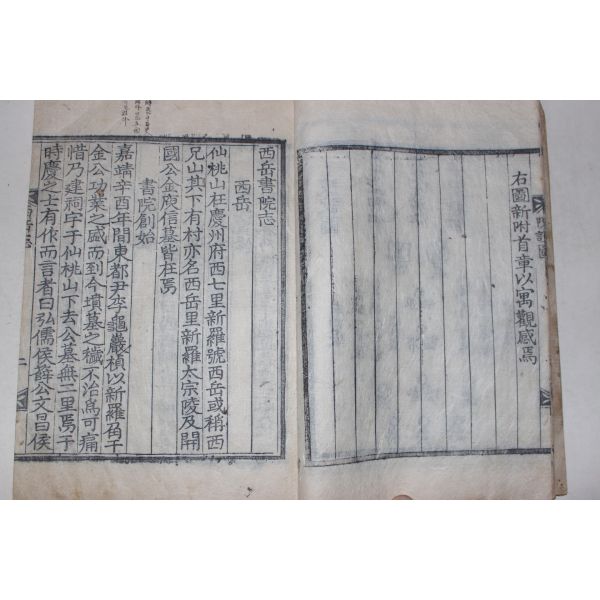 右圖新附首章以寓觀感焉
西岳書院志
西岳
仙桃山在慶州府西七里新羅號西岳或稱西
兄山其下有村亦名西岳里新羅太宗陵及開
國公金庾信墓皆在焉
書院創始
嘉靖辛酉年間東都尹李龜巖楨以新羅角干
金公功業之盛而到今墳墓之穢不治爲可痛
惜乃建祠宇于仙桃山下去公墓無二里焉于
時慶之士有作而言者曰弘儒侯薛公文昌侯
二